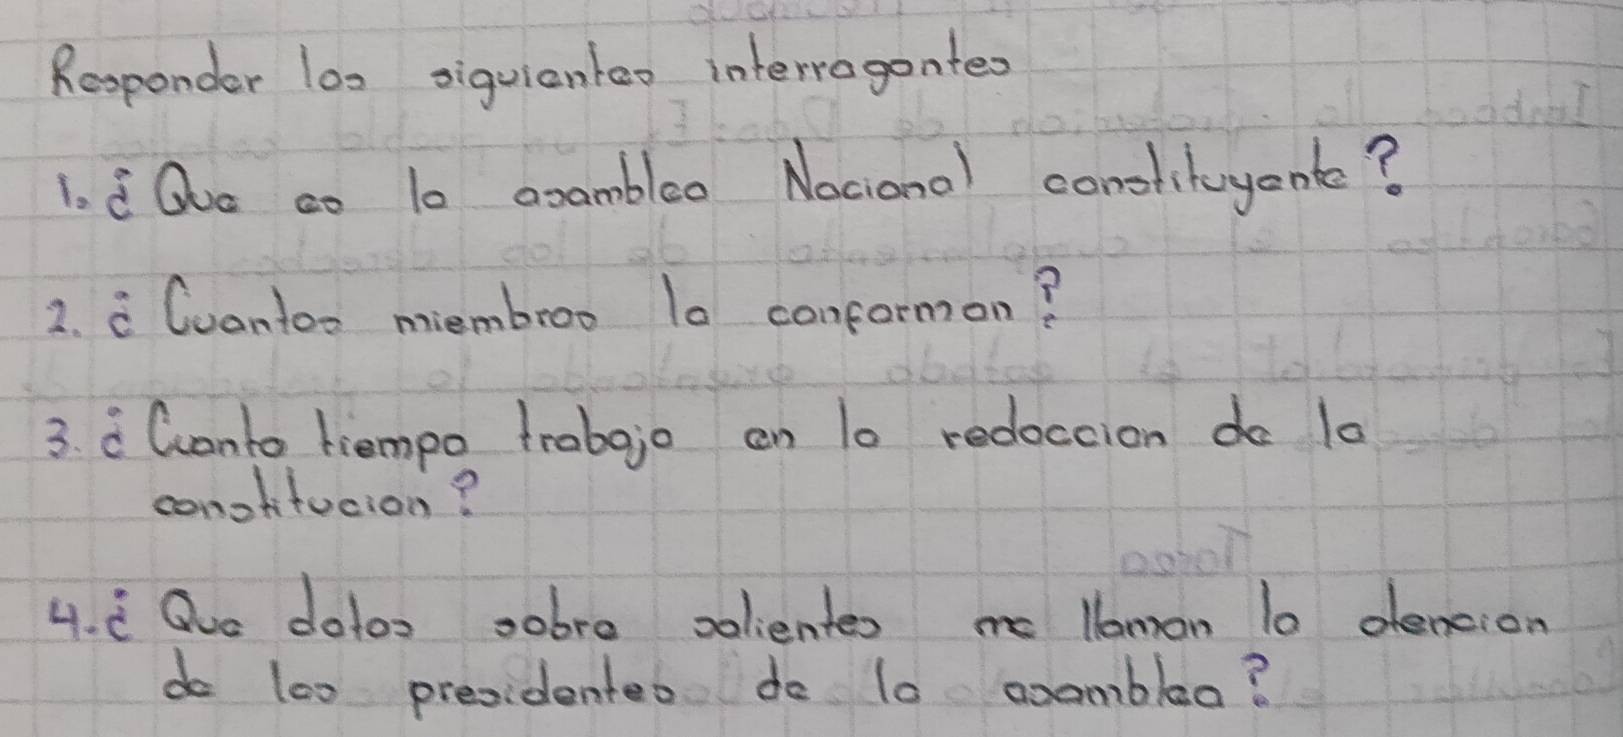 Responder las siguientes interrogantes
1. ¿Que es la asamblea Nacional constituyente?
2. ¿Cuantos miembros la conforman?
3. ¿Cuanto tiempo trabajo en la redaccion de la
constitucion?
4. ¿Que datos sobre salientes me llaman la atencion
de los presidentes de la asamblea?